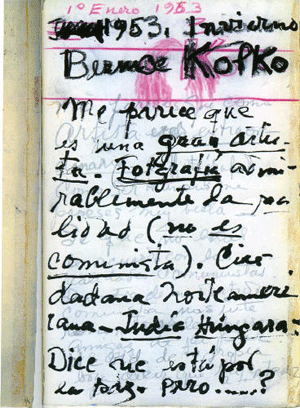 1º Enero 1953
1953. Invierno
Bernice Kolko
Me parece que
es una gran artis-
ta. Fotografía admi-
rablemente la rea
lidad (no es
comunista). Ciu
dadana norteameri
cana - India Hungara.
Dice que está por
la paz. Pero.....?